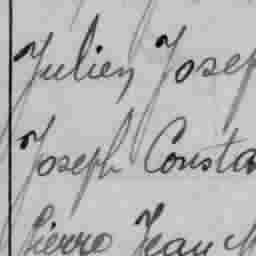 Julien Josep
Joseph Consta
Pierre Jean M